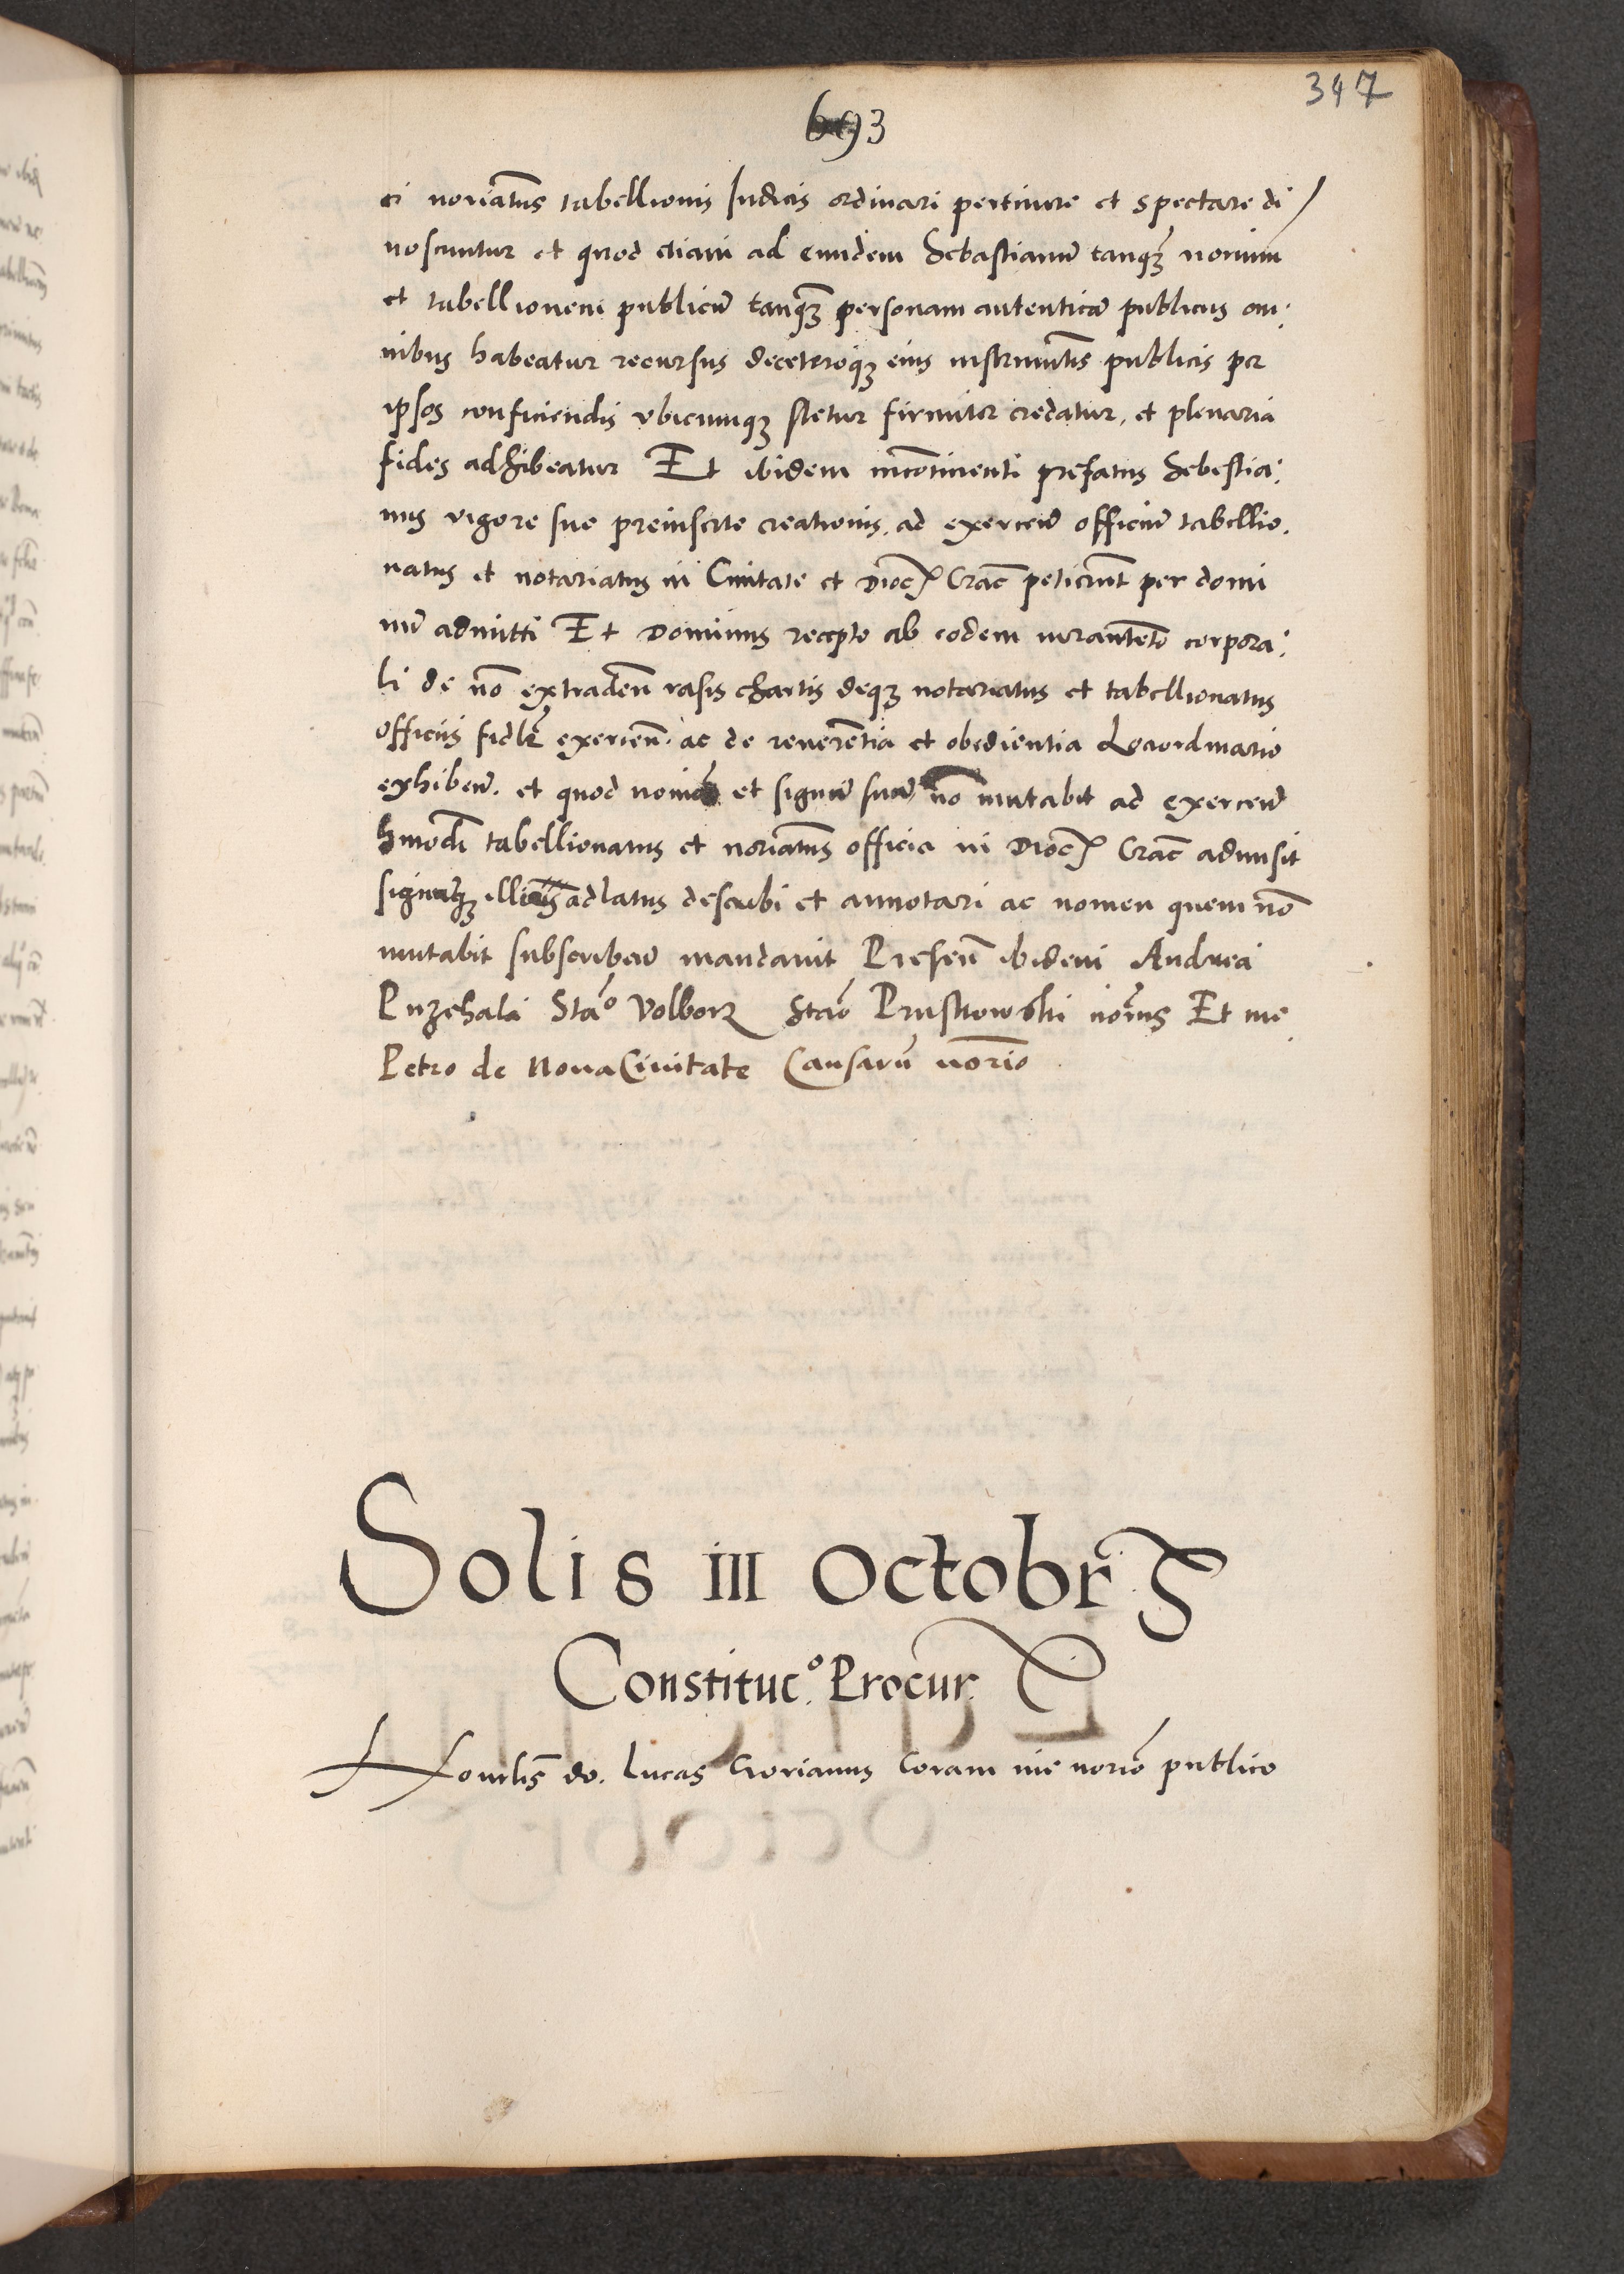 347
693
ci noriatus tabellionis Iudicis ordinari pertinere et spectare di
noscuntur et quod etiam ad eundem Sebastianū tanqꝫ noriuni
et tabellionem publicū tanqꝫ personam autenticā publicus om:
nibus habeatur recursus deceteroqꝫ eius instrumētis publicis per
ipsos conficiendis vbicumqꝫ stetur firmiter credatur, et plenaria
fides adhibeatur Et ibidem incontinenti prefatus Sebestia:
nus vigore sue preinserte creationis, ad exercend officiū tabellio.
natus et notariatus in Ciuitate et Dioc Crac petierunt per domi
nū admitti Et Dominus recepto ab eodem iuramēto corpora:
li de nō extradeñ rasis chartis deqꝫ notariatus et tabellionatus
officiis fidlr exercen̄. ac de reuerentia et obedientia Locordinario
exhibeñ. et quod nomē et signū suū nō mutabit ad exercend
hmodi tabellionatus et noriatus officia in Dioc Crac admisit
signūqꝫ illius ad latus describi et annotari ac nomen quem nō
mutabit subscribere mandauit Preseñ ibidem Andrea
Puzehala Stāo Volborz Stāo Prusinowski noriis Et me
Petro de Noua Ciuitate Causarū norio
Solis III Octobr
Constituc.º Procur.
Honilis do. Lucas Gorianus Coram me norio publico